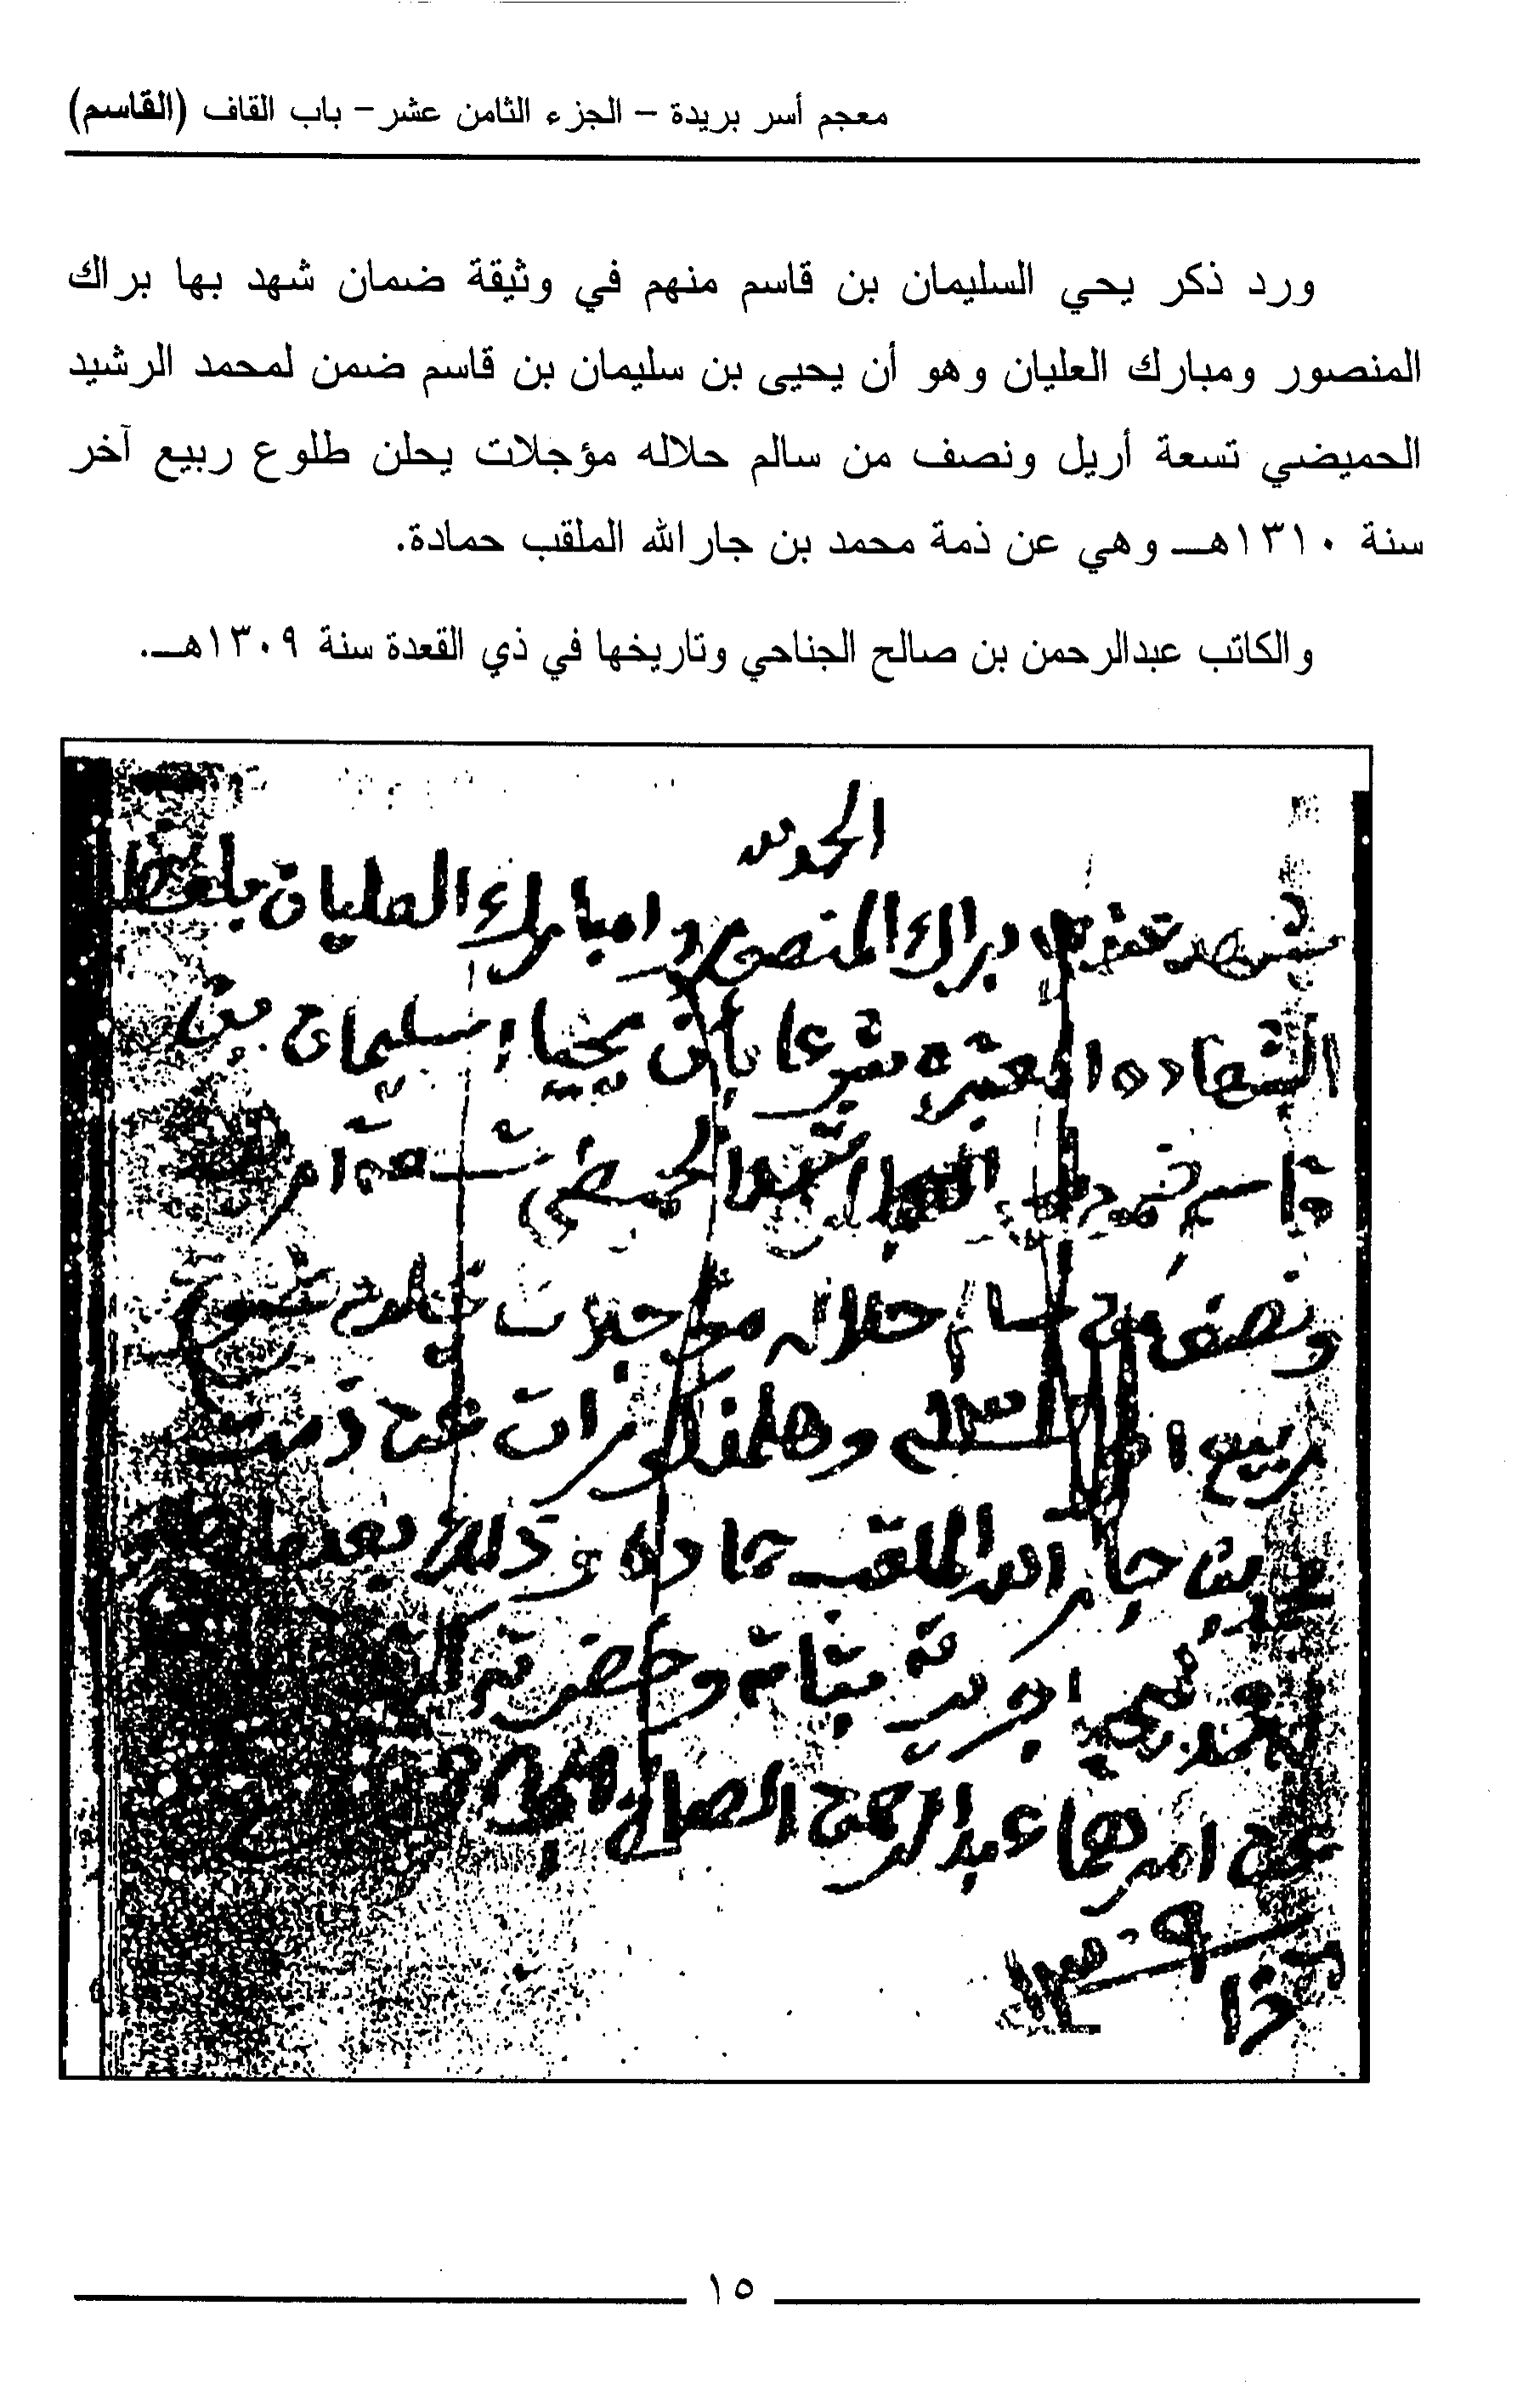 معجم أسر بريدة – الجزء الثامن عشر– باب القاف (القاسم)
ورد ذكر يحي السليمان بن قاسم منهم في وثيقة ضمان شهد بها براك
المنصور ومبارك العليان وهو أن يحيى بن سليمان بن قاسم ضمن لمحمد الرشيد
الحميضي تسعة أريل ونصف من سالم حلاله مؤجلات يحلن طلوع ربيع آخر
سنة ١٣١٠هـ وهي عن ذمة محمد بن جارالله الملقب حمادة.
والكاتب عبدالرحمن بن صالح الجناحي وتاريخها في ذي القعدة سنة ١٣٠٩هـ.
الحمد لله
شهد عندي براك المنصور وامبارك العليان بلفظ
الشهاده المعتبره شرعا بأن يحيا اسليمان بن
قاسم الحميضي تسعة اريل
ونصف من سالم حلاله مؤجلات يحلون طلوع
ربيع وهلمذكورات عن ذمت
محمد بن جار الله الملقب حماده وذلك بعدما
وحضر
عن امرهما عبدالرحمن الصالح
١٣٠٩
١٥